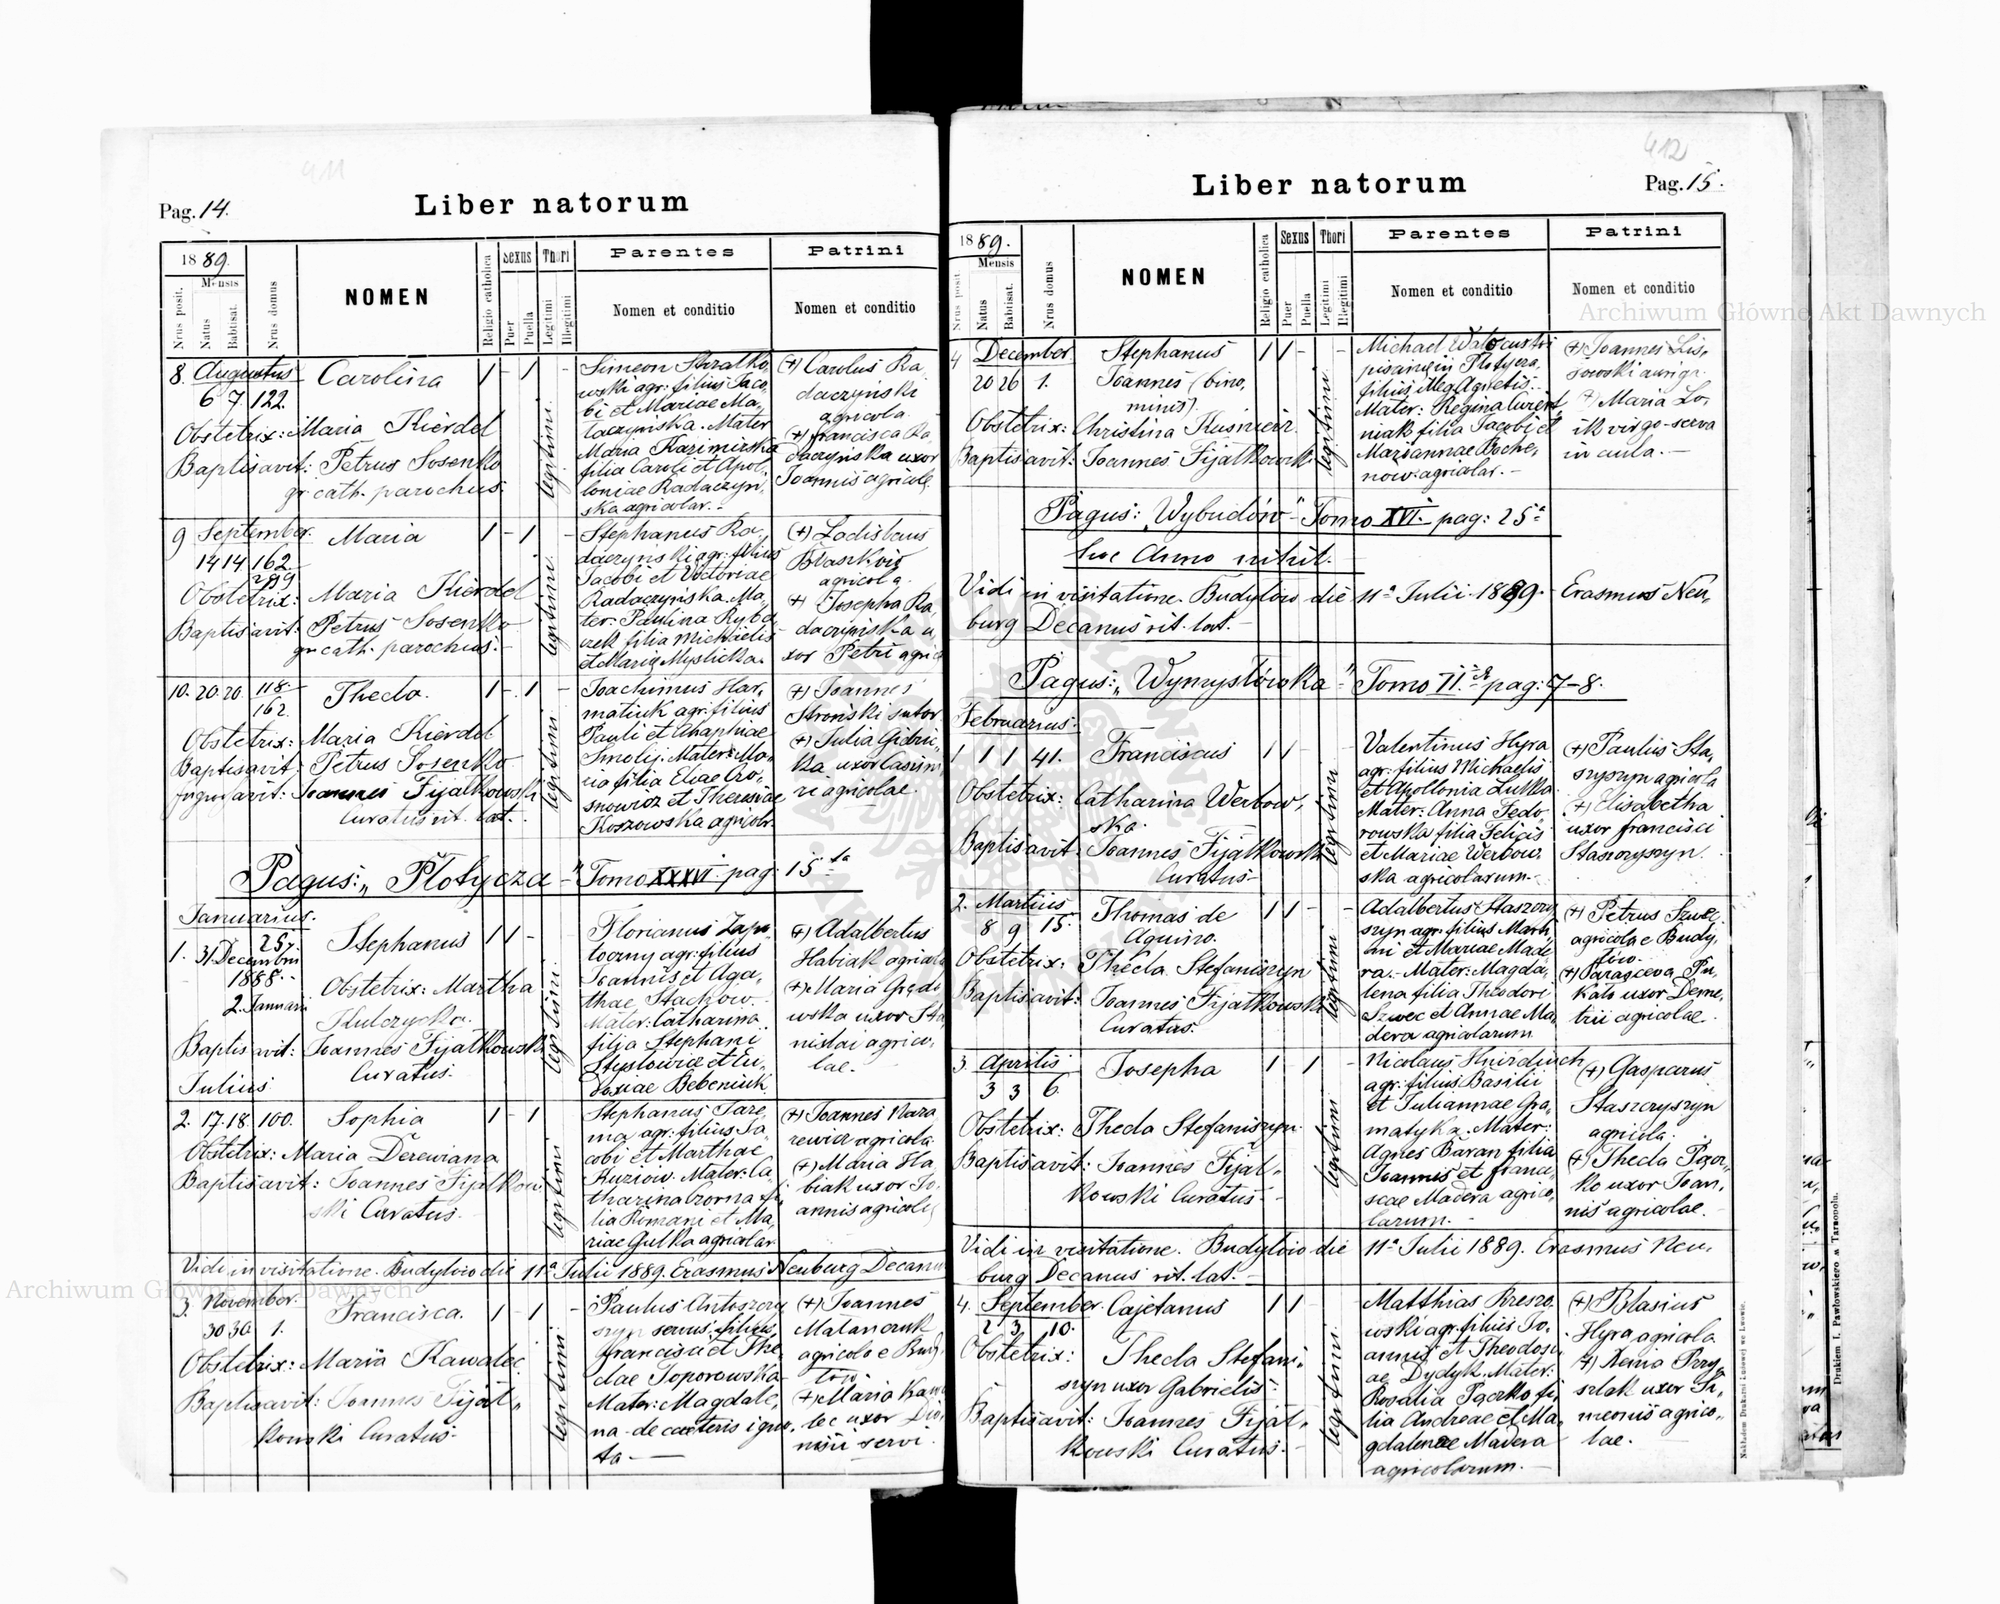 411
Pag. 14.
Liber natorum
1889.
Mensis
Nrus posit.
Natus
Babtisat.
Nrus domus
NOMEN
Religio catholica
Sexus
Puer
Puella
Thori
Legitimi
Illegitimi
Parentes
Nomen et conditio
Patrini
Nomen et conditio
8. Augustus
6 7. 122.
Carolina
1 - 1 -
Obstetrix: Maria Kierdel
Baptisavit: Petrus Sosenko
gr. cath. parochus.
legitimi.
Simeon
wski agr: filius Jaco,
bi et Mariae Ma,
Mater
Maria Kazimirska
filia Caroli et Apol,
loniae Radaczyn,
ska agricolar. -
(+) Carolus Ra,
daczyński
agricola.
(+) Francisca Ra,
daczyńska uxor
Joannis agricole.
9 September.
14 14 162
Maria
1 - 1 -
Obstetrix: Maria Kierdel
Baptisavit: Petrus Sosenko
gr. cath. parochus. -
legitimi.
Stephanus Ra,
daczynski agr: filius
Jacobi et Victoriae
Radaczyńska. Ma,
ter: Paulina Ryba
czek filia Michaelis
et Maria Myslicka.
(+) Ladislaus
agricola.
+ Josepha Ra,
daczyńska u,
xor Petri agric
10. 20. 20. 118
162.
Thecla.
1 - 1 -
Obstetrix: Maria Kierdel
Baptisavit: Petrus Sosenko
Joannes Fijałkowski
Curatus rit. lat. -
legitimi
Joachimus Har,
matiuk agr. filius
Pauli et Ahaphiae
Smolij. Mater: Ma,
ria filia Eliae
et Theresiae
Koszowska agricolr.
(+) Joannes
Stroński sutor
(+) Julia
ka uxor Casim,
ri agricolae.
Pagus: „Płotycza" - Tomo XXXVI. pag: 15.ta
Januarius.
1. 31. Decembris 257.
1888. -
2. Januarii
Stephanus
1 1 -
Obstetrix: Martha
Kulczycka.
Baptisavit: Joannes Fijałkowski
Curatus.
legitimi.
Florianus Zapo,
toczny agr: filius
Joannis et Aga,
thae Stachów.
Mater: Catharina
filia Stephani
et Eu,
doxiae Bebeniuk
(+) Adalbertus
Habiak agricola
(+) Maria
wska uxor Sta
nislai agrico,
lae. -
Julius
2. 17. 18. 100.
Sophia
1 - 1
Obstetrix: Maria Derewiana
Baptisavit: Joannes Fijałkow
ski Curatus.
legitimi
Stephanus Jare,
ma agr: filius Ja,
cobi et Marthae
Kuziów. Mater: Ca,
tharina Czorna fi
lia Romani et Ma,
riae Gulka agricolar.
(+) Joannes Naza
rewicz agricola
(+) Maria Ha,
biak uxor Jo,
annis agricole
Vidi in visitatione. Budyłów die 11ª Julii 1889. Erasmus Neuburg Decanus
3. November.
30 30. 1.
Francisca.
1 - 1
Obstetrix: Maria Kawalec
Baptisavit: Joannes Fijał,
kowski Curatus. -
legitimi
Paulus Antoszczy
szyn servus. filius
Francisci et The,
clae Toporowska
Mater: Magdale,
na - de caeteris igno,
ta. -
(+) Joannes
Malanczuk
agricola e Budy
łów. -
(+) Maria Kawa
lec uxor Dio,
nisii servi.
412
Liber natorum
Pag. 15.
1889.
Mensis
Nrus posit.
Natus
Babtisat.
Nrus domus
NOMEN
Religio catholica
Sexus
Puer
Puella
Thori
Legitimi
Illegitimi
Parentes
Nomen et conditio
Patrini
Nomen et conditio
4 December.
20 26 1.
Stephanus
Joannes (bino,
minis).
1 1 - -
Obstetrix: Christina Kusnierz.
Baptisavit: Joannes Fijałkowski
legitimi
Michael
Płotycza.
filius illeg. Agnetis. -
Mater: Regina
niak filia Jacobi et
Mariannae Boche,
now. agricolar. -
(+) Joannes Lis,
sowski auriga.
+) Maria Lo,
ik virgo - serva
in aula. -
Pagus: „Wybudów" - Tomo XVI. pag: 25ª
hoc Anno nihil. -
Vidi in visitatione. Budyłów die 11ª Julii 1889. - Erasmus Neu,
burg Decanus rit. lat. -
Pagus: „Wymysłówka" Tomo II. pag: 7-8.
Februarius.
1 1 1 41.
Franciscus
1 1 -
Obstetrix: Catharina Werbow,
ska.
Baptisavit: Joannes Fijałkowski
Curatus -
legitimi
Valentinus Hyra
agr: filius Michaelis
et Apollonia Lutka
Mater: Anna Fedo,
rowska filia Felicis
et Mariae Werbow,
ska agricolarum. -
(+) Paulus Sta,
szyszyn agricola
(+) Elisabetha
uxor Francisci
Staszczyszyn.
2. Martius
8 9 15.
Thomas de
Aquino.
1 1 -
Obstetrix: Thecla Stefaniszyn
Baptisavit: Joannes Fijałkowski
Curatus.
legitimi
Adalbertus Staszczy
szyn agr: filius Marti
ni et Mariae Made,
ra. - Mater: Magda,
lena filia Theodori
Szwec et Annae Ma,
dera agricolarum
(+) Petrus Szwec
agricola e Budy,
łów.
(+) Parasceva Pu,
kato uxor Deme,
trii agricolae.
3. Aprilis
3 3 6.
Josepha
1 1 -
Obstetrix: Thecla Stefaniszyn
Baptisavit: Joannes Fijał,
kowski Curatus -
legitimi
Nicolaus
agr: filius Basilii
et Juliannae Gra,
matyka. Mater:
Agnes Baran filia
Joannis et Franci,
scae Madera agrico,
larum. -
(+) Gasparus
Staszczyszyn
agricola.
(+) Thecla
ko uxor Joan,
nis agricolae.
Vidi in visitatione. Budyłów die 11ª Julii 1889. Erasmus Neu,
burg Decanus rit. lat. -
4. September.
2 3 10.
Cajetanus
1 1 -
Obstetrix: Thecla Stefani,
szyn uxor Gabrielis. -
Baptisavit: Joannes Fijał,
kowski Curatus. -
legitimi.
Matthias Brezo
wski agr. filius Jo,
annis et Theodosi
ae Dydyk. Mater:
Rosalia Paczko fi,
lia Andreae et Ma,
gdalenae Madera
agricolarum. -
(+) Blasius
Hyra agricola
(+) Xenia Przy,
szlak uxor Si,
meonis agrico,
lae. -
Nakładem Drukarni Ludowej we Lwowie.
Drukiem I. Pawłowskiego w Tarnopolu.
Archiwum Główne Akt Dawnych
Archiwum Główne Akt Dawnych